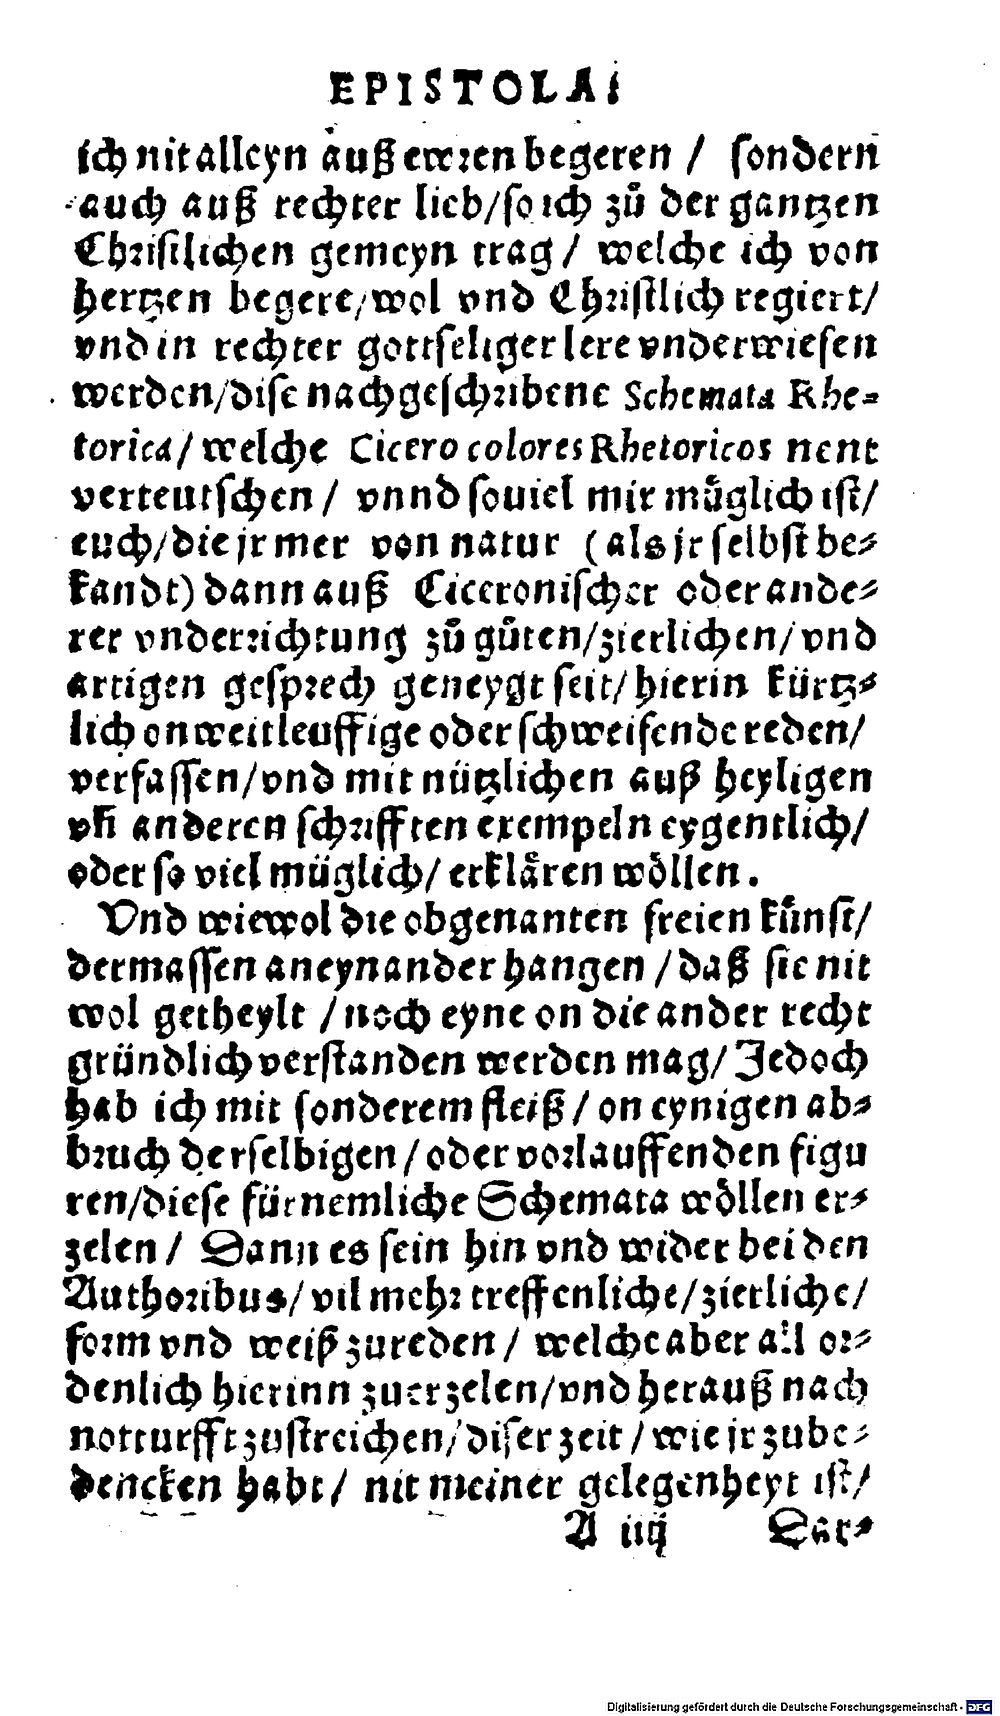 EPISTOLA.
ich nit alleyn auß ewren begeren / sondern
auch auß rechter lieb/so ich zů der gantzen
Christlichen gemeyn trag / welche ich von
hertzen begere/wol vnd Christlich regiert/
vnd in rechter gottseliger lere vnderwiesen
werden/dise nachgeschribene Schemata Rhe-
torica/welche Cicero colores Rhetoricos nent
verteutschen / vnnd souiel mir můglich ist/
euch/die jr mer von natur (als jr selbst be-
kandt) dann auß Ciceronischer oder ande-
rer vnderrichtung zů gůten/zierlichen/vnd
artigen gesprech geneygt seit/hierin kürtz-
lich on weitleuffige oder schweifende reden/
verfassen/vnd mit nützlichen auß heyligen
vñ anderen schrifften exempeln eygentlich/
oder so viel müglich/erklåren wöllen.
Vnd wiewol die obgenanten freien kůnst/
dermassen aneynander hangen /daß sie nit
wol getheylt /noch eyne on die ander recht
gründlich verstanden werden mag/Jedoch
hab ich mit sonderem fleiß/on eynigen ab-
bruch derselbigen/oder vorlauffenden figu
ren/diese fürnemliche Schemata wöllen er-
zelen / Dann es sein hin vnd wider bei den
Authoribus/vil mehr treffenliche/zierliche/
form vnd weiß zureden / welche aber all or-
denlich hierinn zuerzelen/vnd herauß nach
notturfft zustreichen/diser zeit/wie jr zube-
dencken habt/ nit meiner gelegenheyt ist/
A iiij Dar-
Digitalisierung gefördert durch die Deutsche Forschungsgemeinschaft - DFG